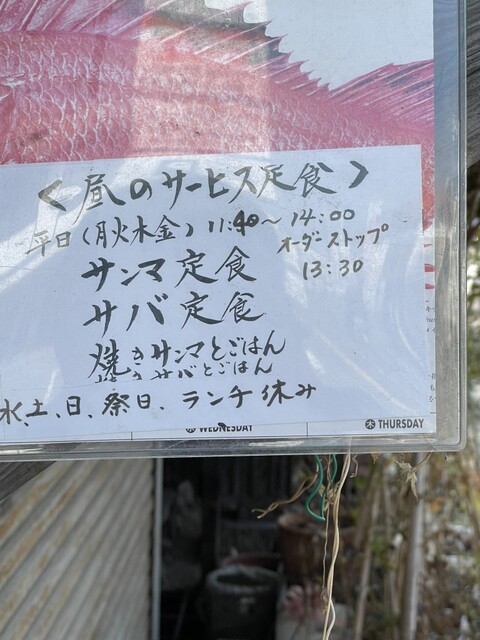 〈昼のサービス定食〉
平日(月火木金)11:40~14:00
オーダーストップ
13:30
サンマ定食
サバ定食
焼きサンマとごはん
焼きサバとごはん
水、土、日、祭日、ランチ休み
水 WEDNESDAY
木 THURSDAY